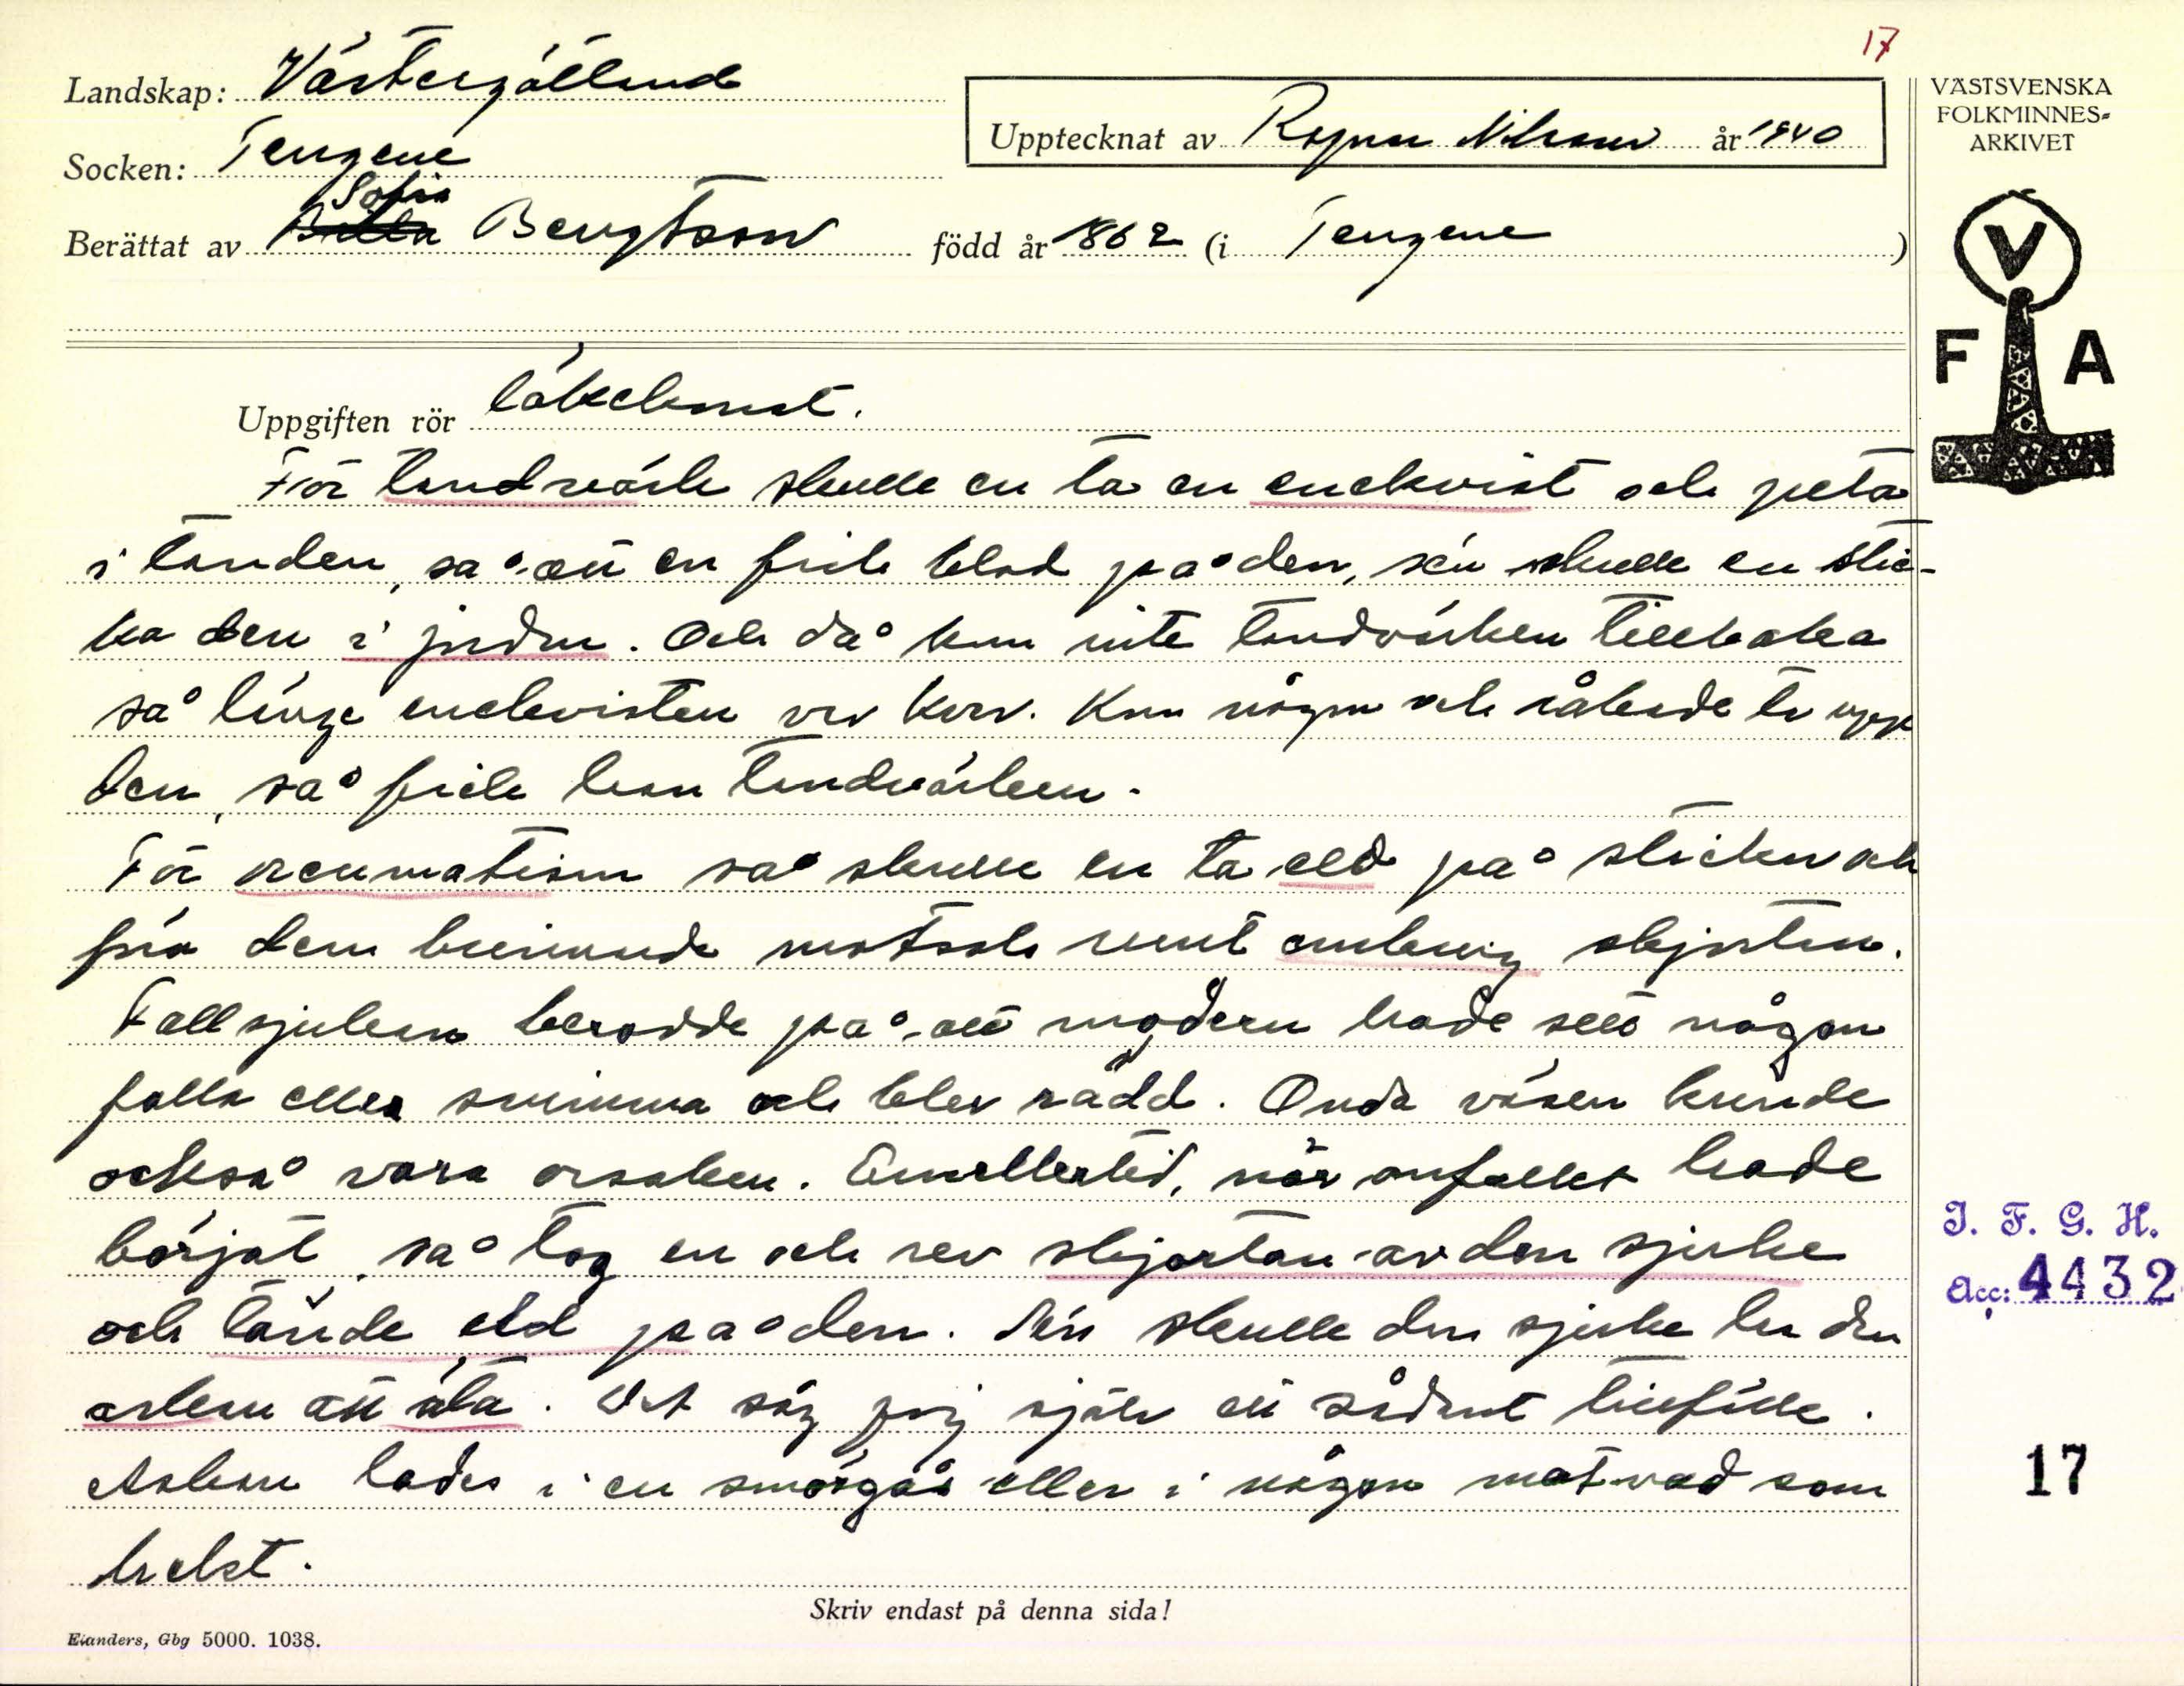 17
Landskap: Västergötland
Socken: Tengene
Upptecknat av Ragnar Nilsson år 1940
Sofia
Berättat av Britta Bengtsson född år 1862 (i Tengene)
VÄSTSVENSKA
FOLKMINNES-
ARKIVET
V
F A
Uppgiften rör läkekonst.
För tandvärk skulle en ta en enekvist och peta
i tanden, så att en fick blod på den, sen skulle en stic-
ka den i jorden. Och då kom inte tandvärken tillbaka
så länge enekvisten var kvar. Kom någon och råkade ta upp
den, så fick han tandvärken.
För reumatism så skulle en ta eld på stickor och
föra dem brinnande motsols runt omkring skjortan.
Fallsjukan berodde på att modern hade sett någon
falla eller svimma och blev rädd. Onda väsen kunde
också vara orsaken. Emellertid, när anfallet hade
börjat, så tog en och rev skjortan av den sjuke
och tände eld på den. Sén skulle den sjuke ha den
askan att äta. Det såg jag själv ett sådant tillfälle.
Askan lades i en smörgås eller i någon mat vad som
helst.
J. F. G. H.
Acc: 4432
17
Skriv endast på denna sida!
Elanders, Gbg 5000. 1038.